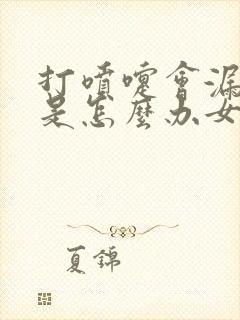 打噴嚏會漏
是怎麼办女
夏錦